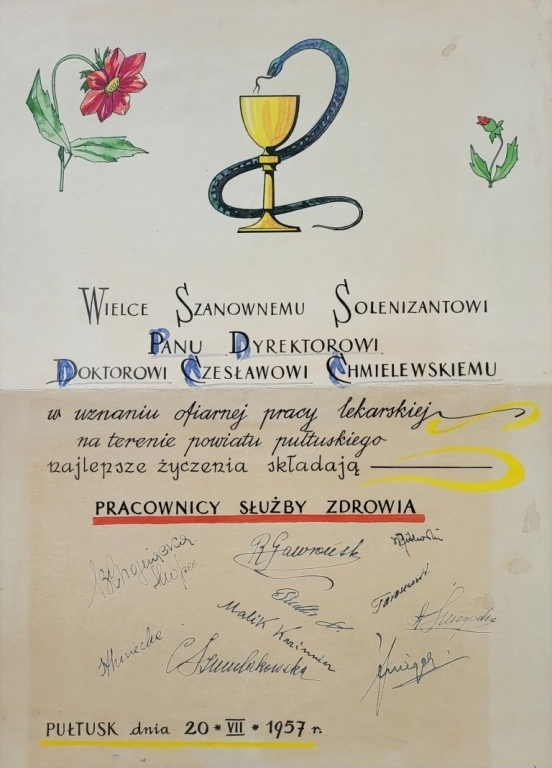 WIELCE SZANOWNEMU SOLENIZANTOWI
PANU DYREKTOROWI
DOKTOROWI CZESŁAWOWI CHMIELEWSKIEMU
w uznaniu ofiarnej pracy lekarskiej
na terenie powiatu pułtuskiego
najlepsze życzenia składają
PRACOWNICY SŁUŻBY ZDROWIA
Malik Kazimierz
PUŁTUSK dnia 20 * VII * 1957 r.